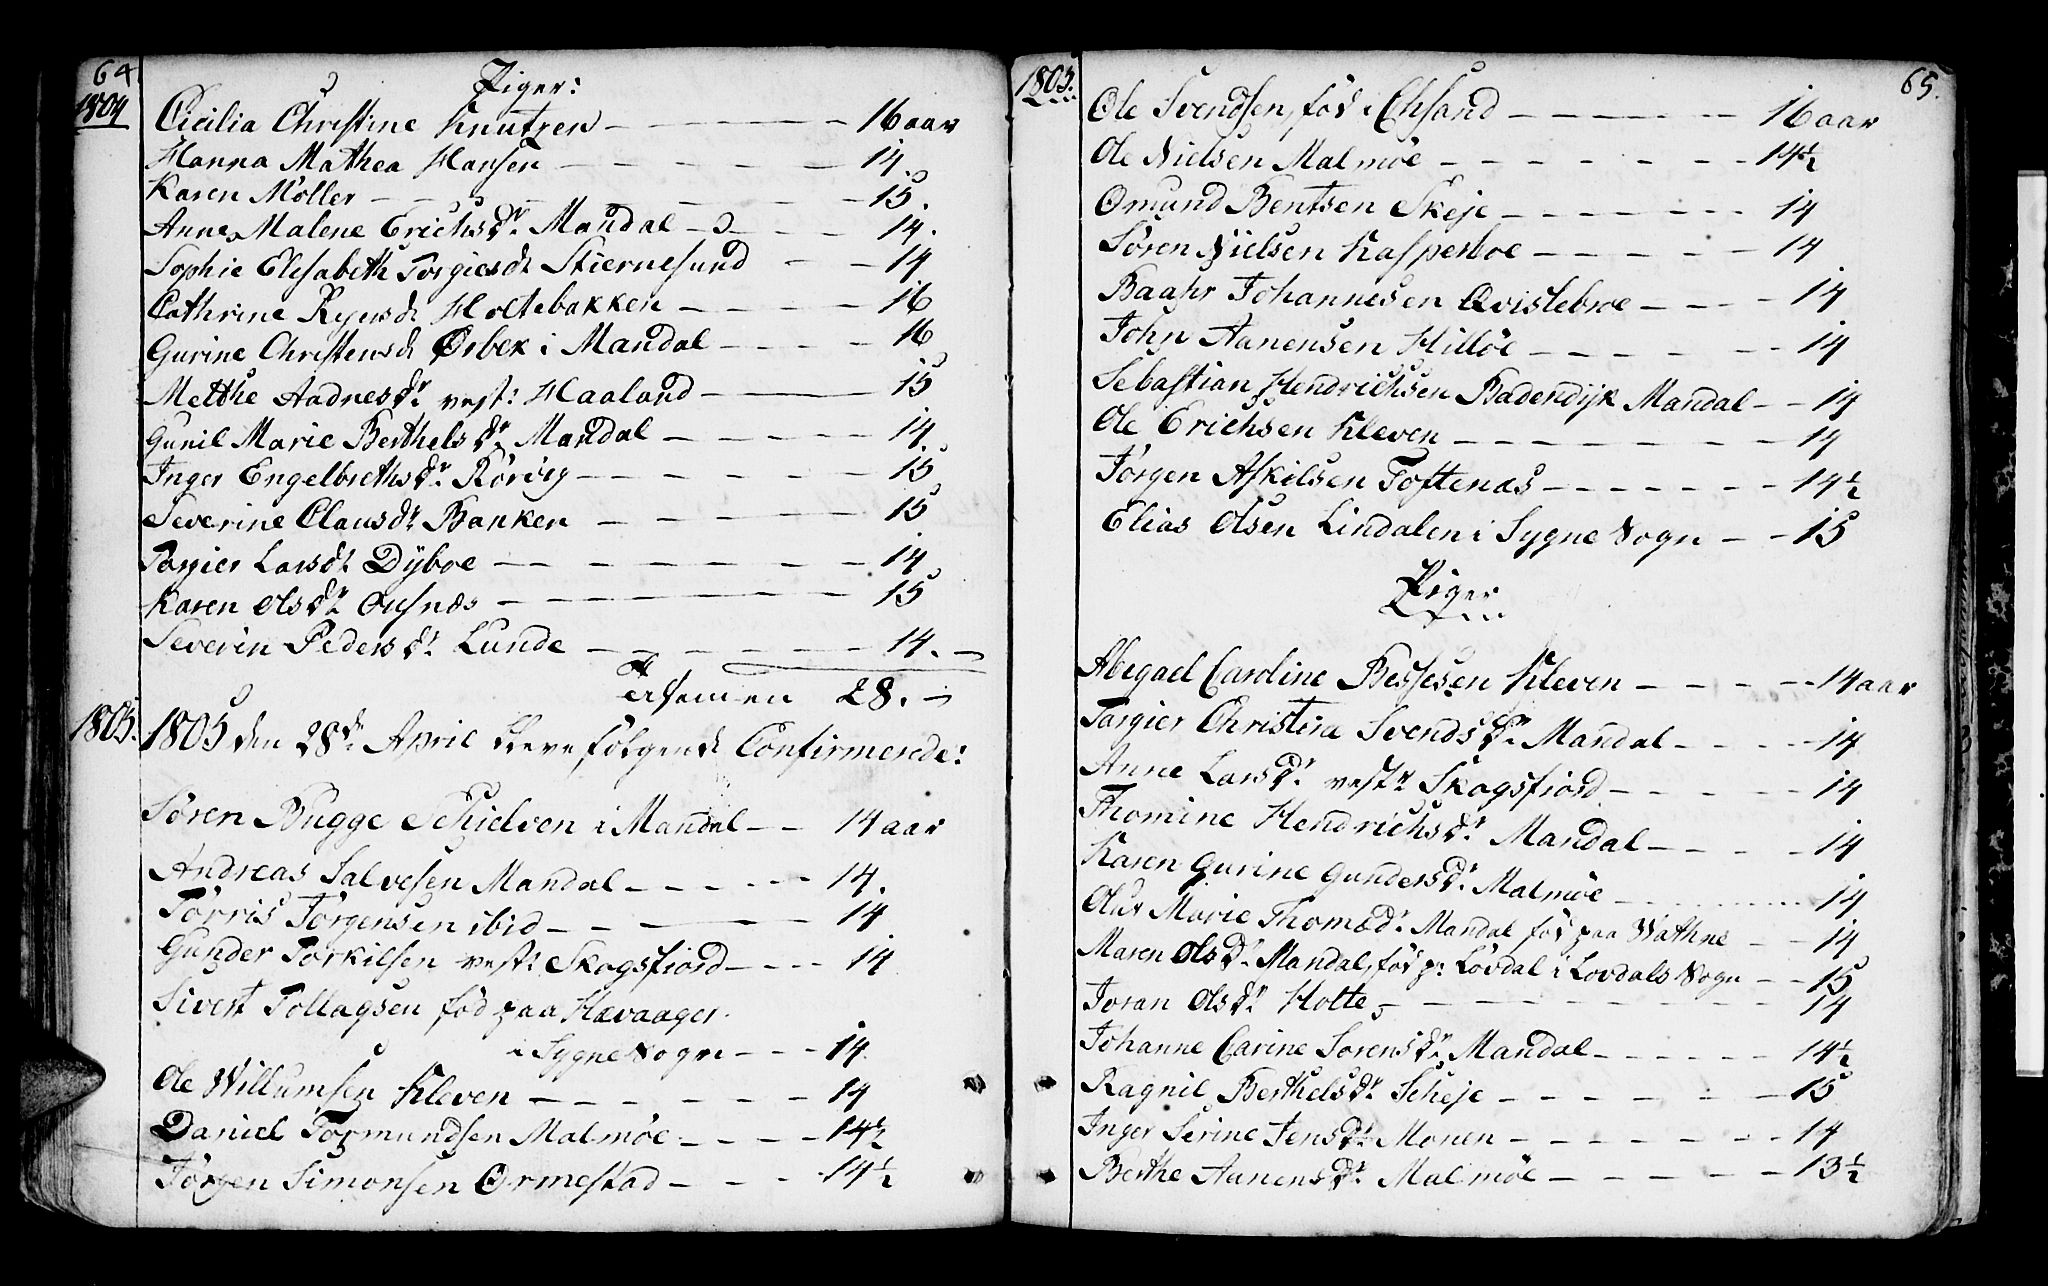 64
1804
Piger:
Cicilia Christine Knutzen - - - - 16 aar
Hanna Mathea Hansen - - - - 14
Karen Möller - - - - 15.
Anne Malene Erichsdr. Mandal - - - 14.
Sophie Elesabeth Torgiersdr Stiernesund - - 14
Cathrine Reyersdr Holtebakken - - - 16
Gurine Christensdr Orbek i Mandal - - - 16
Metthe Aadnesdr. vest: Haaland - - - 15
Gunil Marie Berthelsdr. Mandal - - - 14.
Inger Engelbrethsdr. Rörvig - - - 15
Severine Clausdr. Banken - - - 15
Torgier Larsdr Dyboe - - - 14
Karen Olsdr. Ousnæs - - - 15
Severin Pedersdr. Lunde - - - 14.
Tilsammen 28.
1805.
1805 den 28de April bleve fölgende Confirmerede:
Sören Bugge Schielven i Mandal - - 14 aar
Andreas Salvesen Mandal - - - 14.
Törris Törgensen ibid - - - 14
Gunder Torkilsen vest: Skogsfiord - - - 14
Sivert Tollagsen föd paa Hævaager
i Sygne Sogn - - - 14
Ole Willumsen Kleven - - - 14
Daniel Tormundsen Malmöe - - - 14½
Jörgen Simonsen Ormestad - - - 14½
1805.
65.
Ole Svendsen, föd i Chsand - - - 16 aar
Ole Nielsen Malmöe - - - 14½
Omund Bentsen Skeje - - - 14
Sören Nielsen Kasperboe - - - 14
Baahr Johannesen Qvislebroe - - - 14
John Aanensen Hillöe - - - 14
Sebastian Hendrichsen Badendijk Mandal - - 14
Ole Erichsen Kleven - - - 14
Jörgen Askilsen Toftenæs - - - 14½
Elias Olsen Lindalen i Sygne Sogn - - 15
Piger
Abegael Caroline Bessesen Kleven - - - 14 aar
Torgier Christina Svendsdr. Mandal - - - 14
Anne Larsdr. vestr Skogsfiord - - - 14
Thomine Hendrichsdr. Mandal - - - 14
Karen Gurine Gundersdr. Malmöe - - - 14
Olur Marie Thomædr. Mandal föd paa Wathne - - 14
Maren Olsdr. Mandal, föd p: Lövdal i Lovdals Sogn - - 15
Joran Olsdr. Holte - - - 14
Johanne Carine Sorensdr. Mandal - - - 14½
Ragnil Berthelsdr. Scheje - - - 15
Inger Serine Jensdr. Monen - - - 14
Berthe Aanensdr. Malmöe - - - 13½